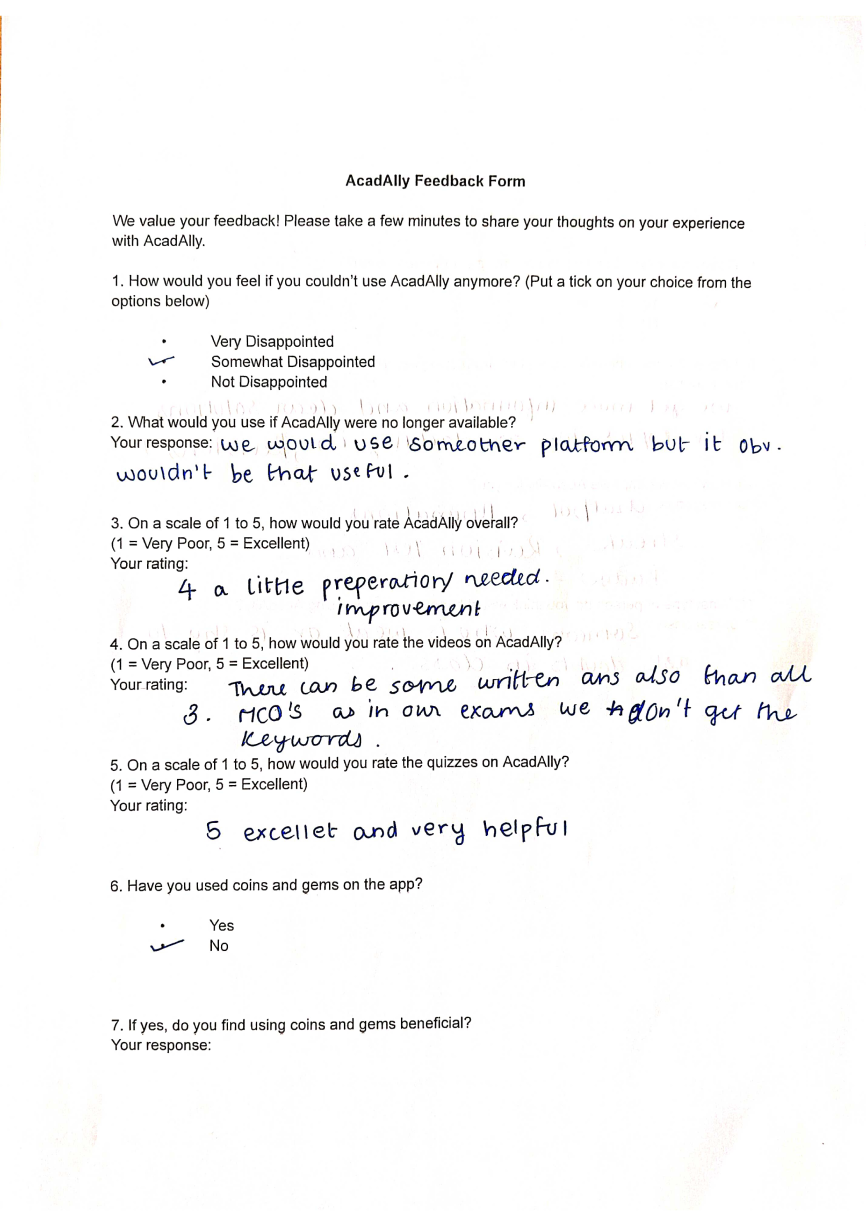 AcadAlly Feedback Form
We value your feedback! Please take a few minutes to share your thoughts on your experience
with AcadAlly.
1. How would you feel if you couldn't use AcadAlly anymore? (Put a tick on your choice from the
options below)
• Very Disappointed
✓ Somewhat Disappointed
• Not Disappointed
2. What would you use if AcadAlly were no longer available?
Your response: we would use someother platform but it obv.
wouldn't be that useful.
3. On a scale of 1 to 5, how would you rate AcadAlly overall?
(1 = Very Poor, 5 = Excellent)
Your rating:
4 a little preperatiory needed.
improvement
4. On a scale of 1 to 5, how would you rate the videos on AcadAlly?
(1 = Very Poor, 5 = Excellent)
Your rating: There can be some written ans also than all
3. MCO's as in our exams we don't get the
keywords.
5. On a scale of 1 to 5, how would you rate the quizzes on AcadAlly?
(1 = Very Poor, 5 = Excellent)
Your rating:
5 excellet and very helpful
6. Have you used coins and gems on the app?
• Yes
✓ No
7. If yes, do you find using coins and gems beneficial?
Your response: